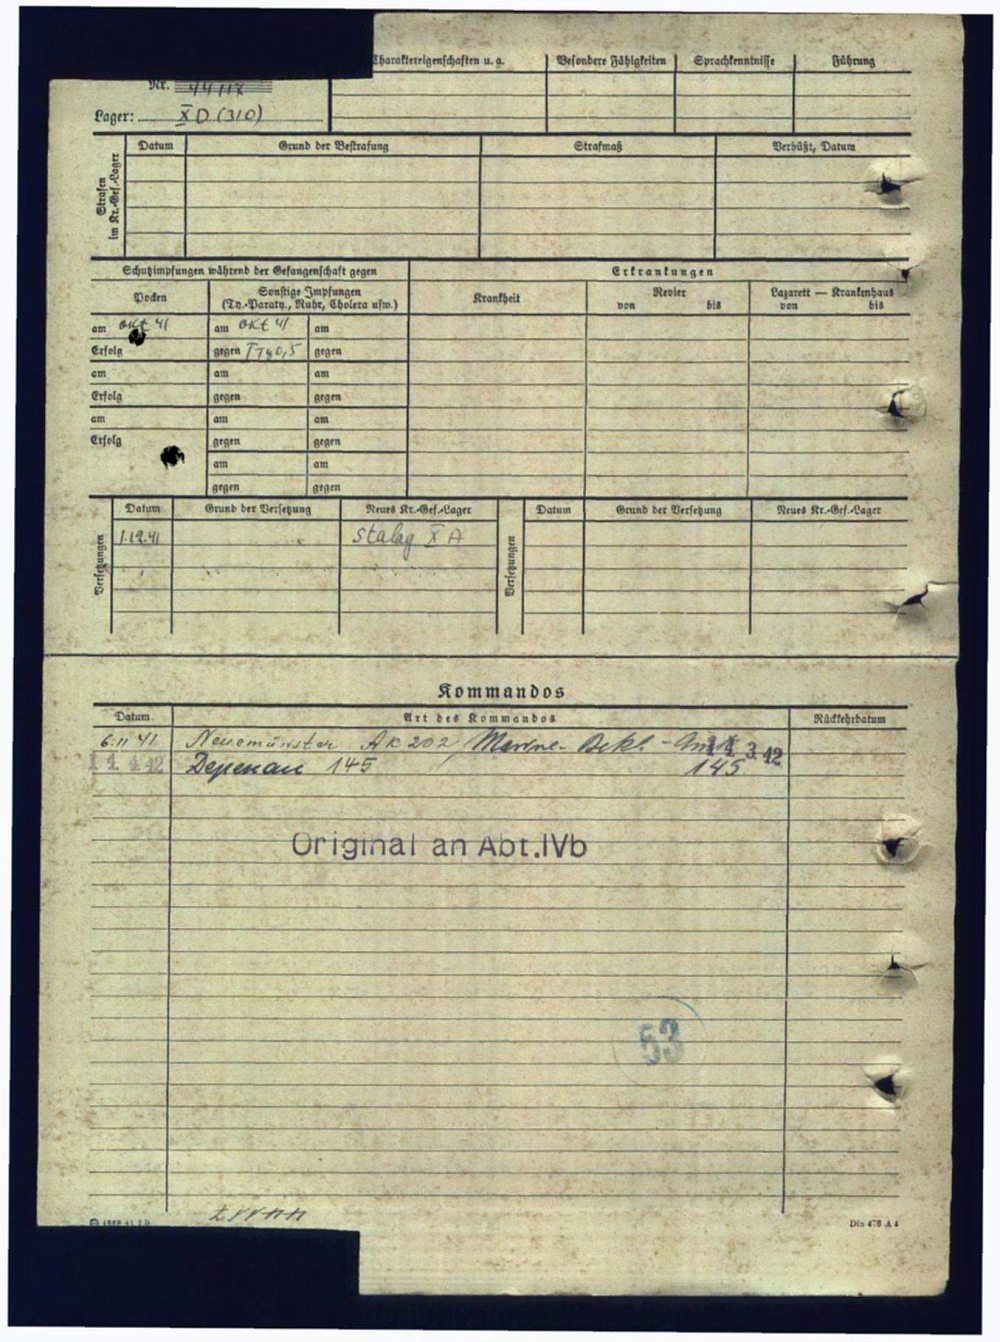 Charaktereigenschaften u. a. Besondere Fähigkeiten Sprachkenntnisse Führung
Nr.
Lager: X D (310)
Strafen im Kr.-Gef.-Lager
Datum Grund der Bestrafung Strafmaß Verbüßt, Datum
Schutzimpfungen während der Gefangenschaft gegen Erkrankungen
Pocken Sonstige Impfungen (Ty.-Paraty., Ruhr, Cholera usw.) Krankheit Revier von bis Lazarett — Krankenhaus von bis
am Okt 41 am Okt 41 am
Erfolg gegen TTy 0,5 gegen
am am am
Erfolg gegen gegen
am am am
Erfolg gegen gegen
am am
gegen gegen
Versetzungen Datum Grund der Versetzung Neues Kr.-Gef.-Lager Versetzungen Datum Grund der Versetzung Neues Kr.-Gef.-Lager
1.12.41 Stalag X A
Kommandos
Datum Art des Kommandos Rückkehrdatum
6.11.41 Neumünster AK 202 Marine-Bekl.- 3.42
14. 4. 42 Depenau 145 145
Original an Abt.IVb
53
Din 476 A 4